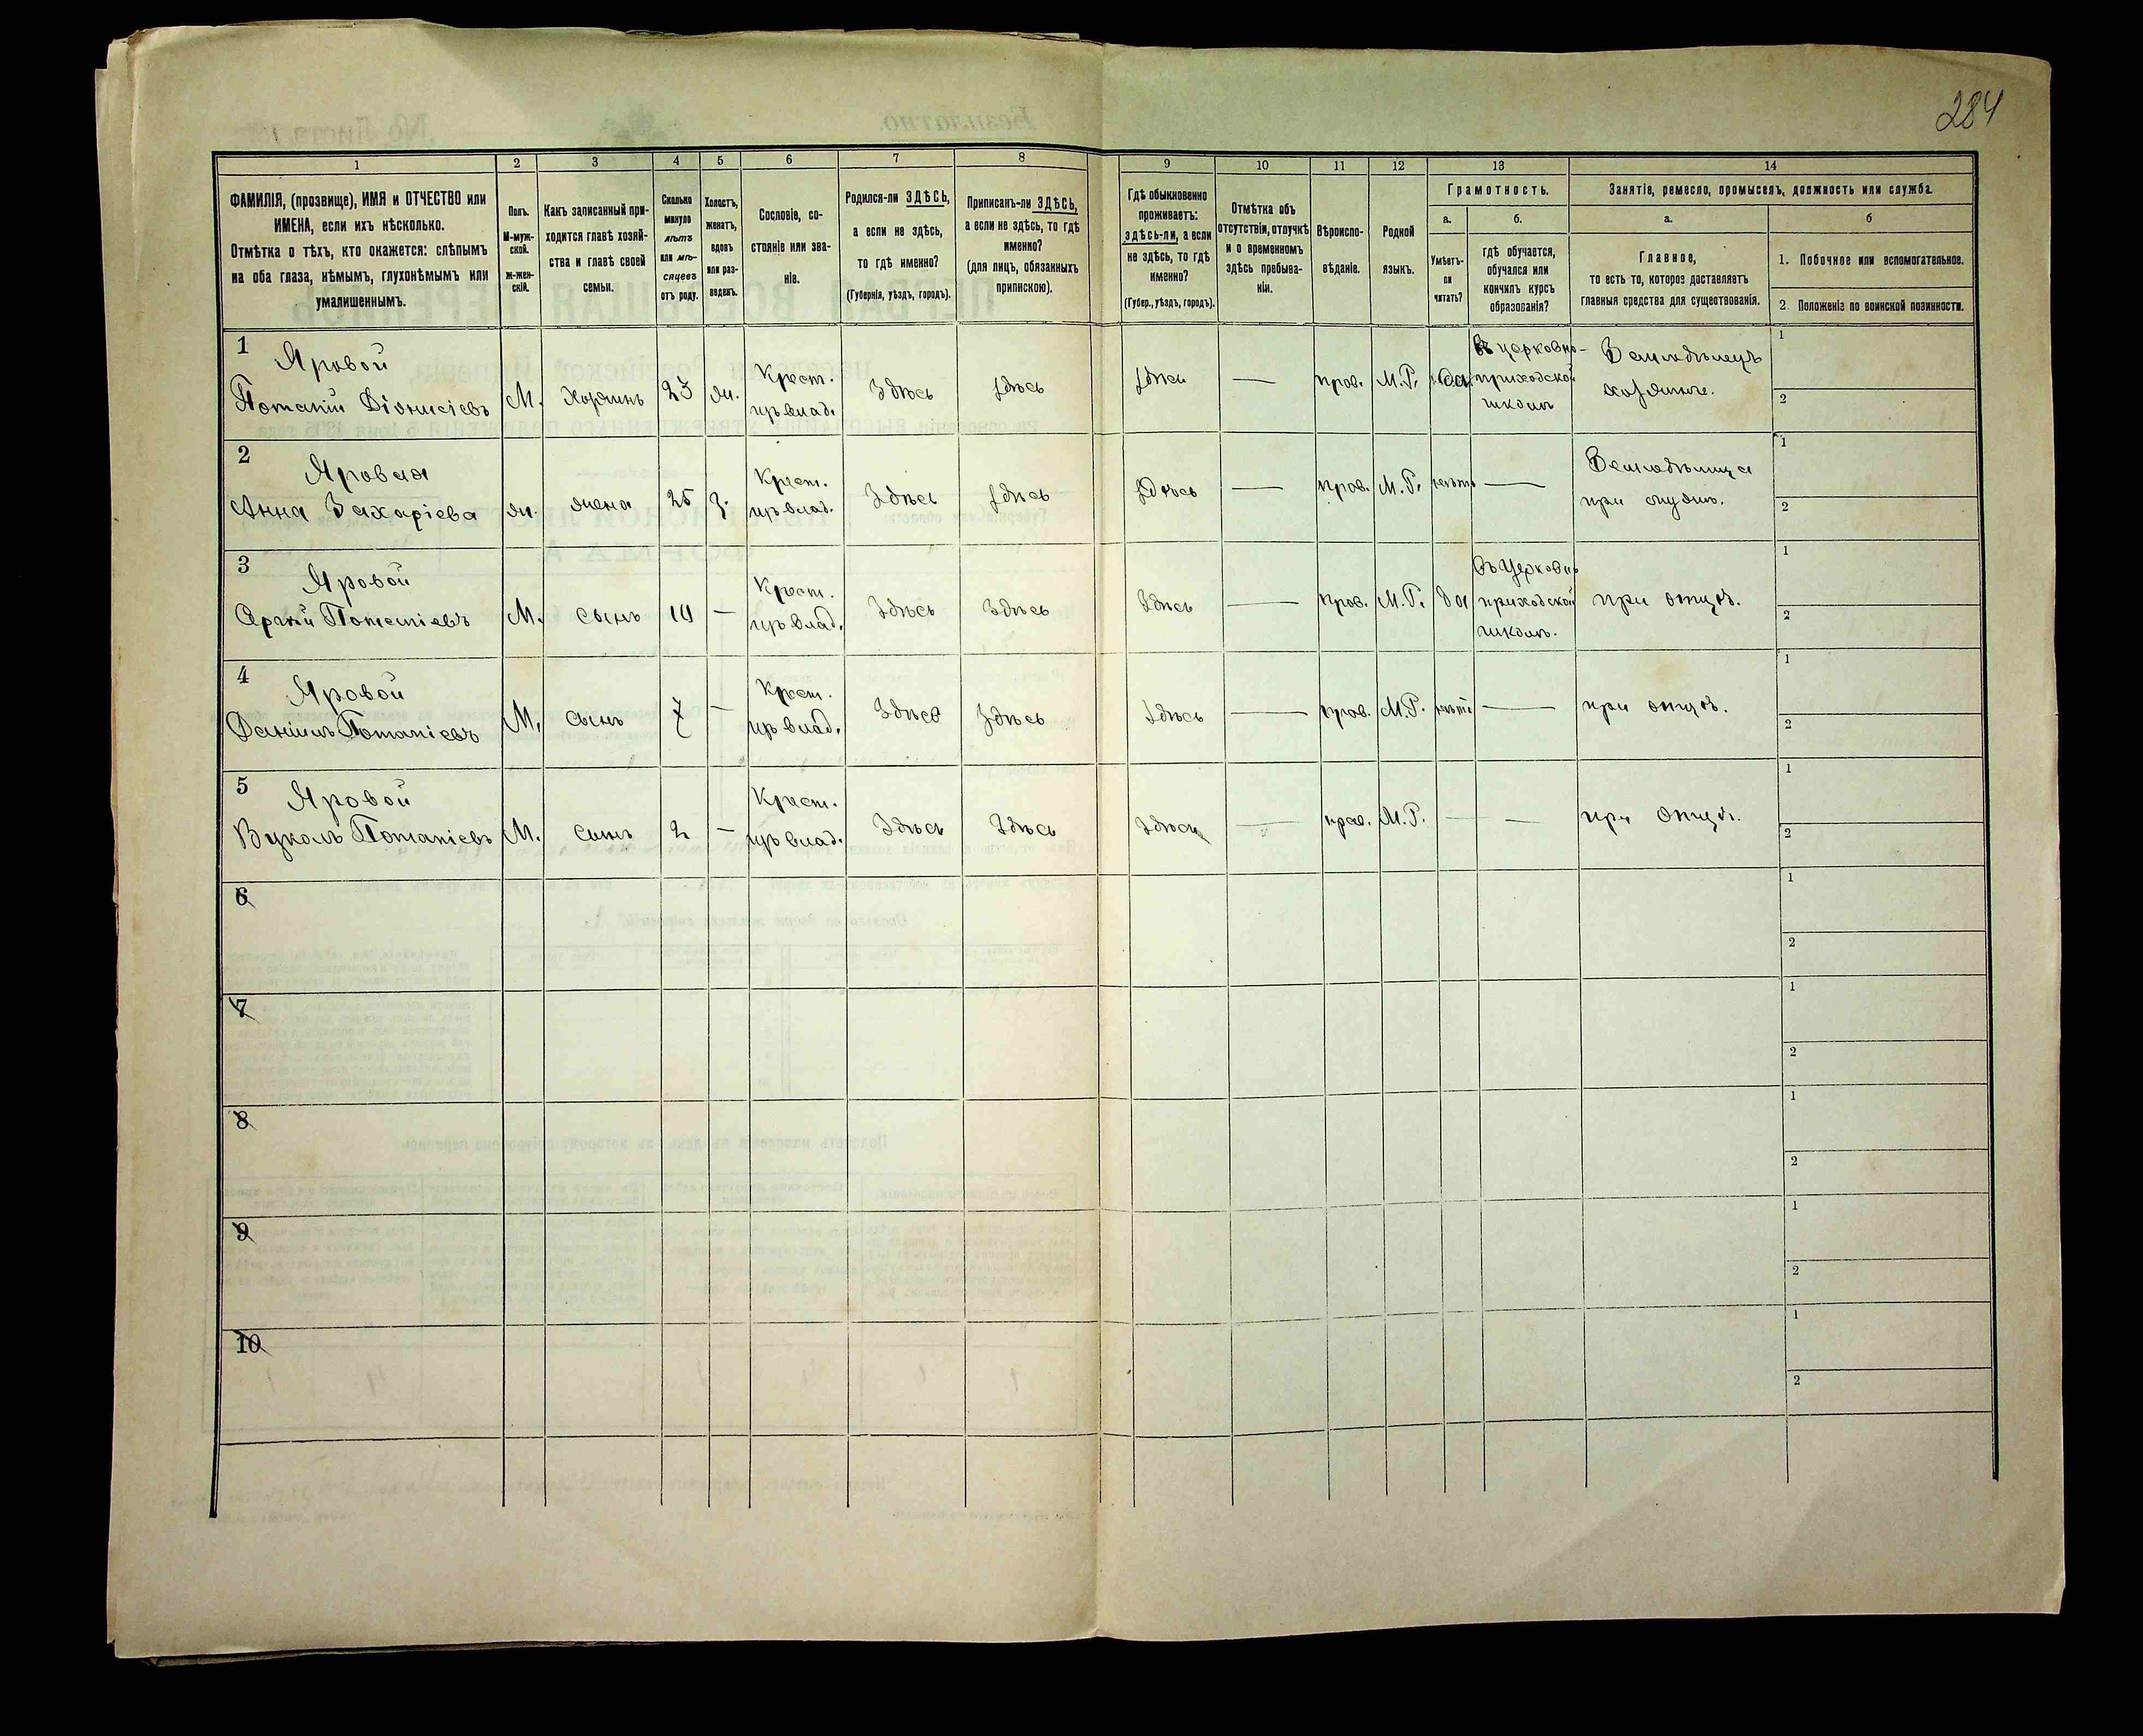 284
1 2 3 4 5 6 7 8 9 10 11 12 13 14
ФАМИЛІЯ, (прозвище), ИМЯ и ОТЧЕСТВО или
ИМЕНА, если ихъ нѣсколько.
Отмѣтка о тѣхъ, кто окажется: слѣпымъ
на оба глаза, нѣмымъ, глухонѣмымъ или
умалишеннымъ.
Полъ.
М-муж-
ской.
ж-жен-
скій.
Какъ записанный при-
ходится главѣ хозяй-
ства и главѣ своей
семьи.
Сколько
минуло
лѣтъ
или мѣ-
сяцевъ
отъ роду.
Холостъ,
женатъ,
вдовъ
или раз-
веденъ.
Сословіе, со-
стояніе или зва-
ніе.
Родился-ли ЗДѢСЬ,
а если не здѣсь,
то гдѣ именно?
(Губернія, уѣздъ, городъ).
Приписанъ-ли ЗДѢСЬ,
а если не здѣсь, то гдѣ
именно?
(для лицъ, обязанныхъ
припискою).
Гдѣ обыкновенно
проживаетъ:
здѣсь-ли, а если
не здѣсь, то гдѣ
именно?
(Губер., уѣздъ, городъ).
Отмѣтка объ
отсутствіи, отлучкѣ
и о временномъ
здѣсь пребыва-
ніи.
Вѣроиспо-
вѣданіе.
Родной
языкъ.
Грамотность.
а.
Умѣетъ-
ли
читать?
б.
гдѣ обучается,
обучался или
кончилъ курсъ
образованія?
Занятіе, ремесло, промыселъ, должность или служба.
а.
Главное,
то есть то, которое доставляетъ
главныя средства для существованія.
б
1. Побочное или вспомогательное.
2. Положеніе по воинской повинности.
1 Яровой
Потапій Діонисіевъ
М.
Хозяинъ
23
ж.
Крест.
изъ влад.
Здѣсь
Здѣсь
Здѣсь
—
прав.
М.Р.
да
Въ церковно-
приходской
школѣ
Земледѣлецъ
хозяинъ.
1
2
2 Яровая
Анна Захаріева
ж.
жена
25
з.
Крест.
изъ влад.
Здѣсь
Здѣсь
Здѣсь
—
прав.
М.Р.
нѣтъ
—
Земледѣлица
при мужѣ.
1
2
3 Яровой
Сергѣй Потапіевъ
М.
сынъ
10
—
Крест.
изъ влад.
Здѣсь
Здѣсь
Здѣсь
—
прав.
М.Р.
да
Въ Церковно
приходской
школѣ.
при отцѣ.
1
2
4 Яровой
Даніилъ Потапіевъ
М.
сынъ
7
—
Крест.
изъ влад.
Здѣсь
Здѣсь
Здѣсь
—
прав.
М.Р.
нѣтъ
—
при отцѣ.
1
2
5 Яровой
Вуколъ Потапіевъ
М.
сынъ
2
—
Крест.
изъ влад.
Здѣсь
Здѣсь
Здѣсь
—
прав.
М.Р.
—
—
при отцѣ.
1
2
6
1
2
7
1
2
8
1
2
9
1
2
10
1
2